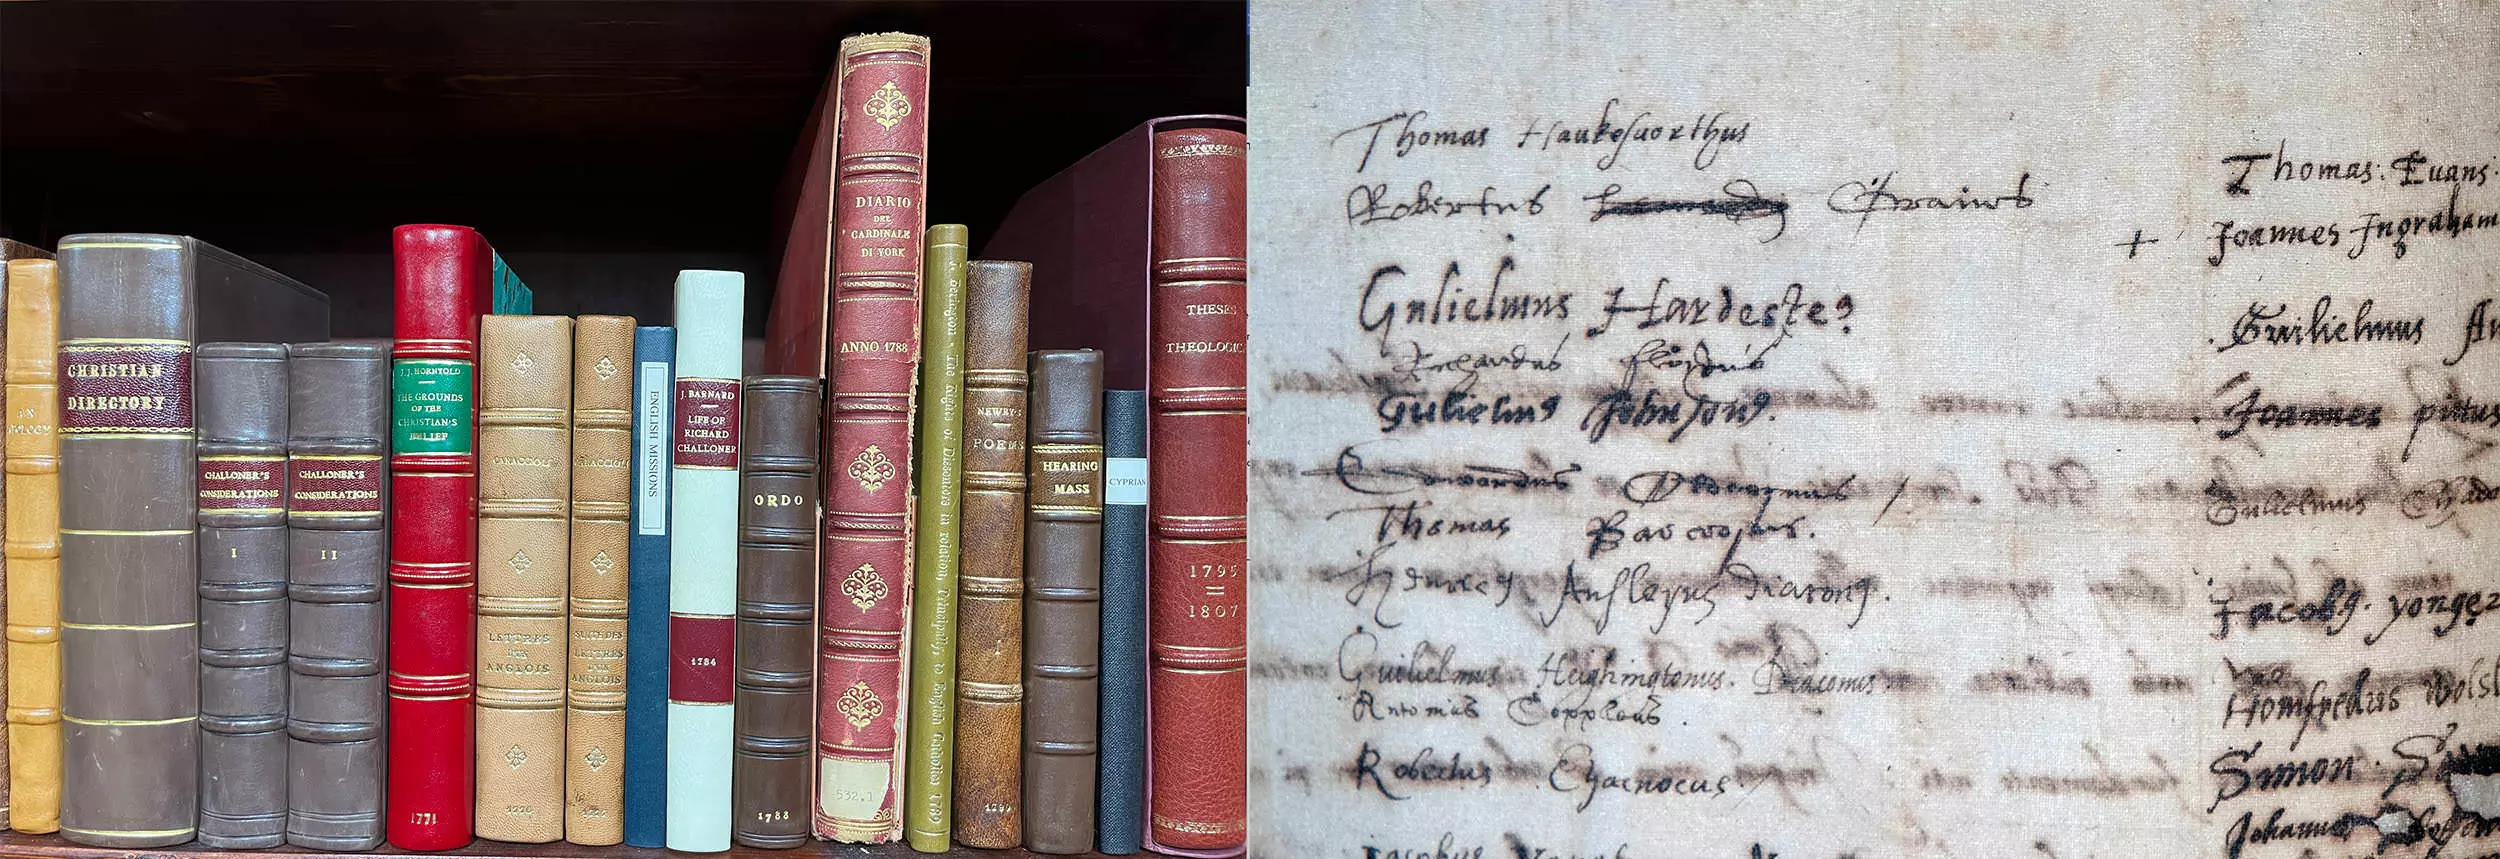 CHRISTIAN
DIRECTORY
CHALLONER'S
CONSIDERATIONS
I
CHALLONER'S
CONSIDERATIONS
II
J. J. HORNYOLD
THE GROUNDS
OF THE
CHRISTIAN'S
BELIEF
1771
CARACCIOLI
LETTRES
D'UN
ANGLOIS
SUITE DES
LETTRES
D'UN
ANGLOIS
ENGLISH MISSIONS
J. BARNARD
LIFE OF
RICHARD
CHALLONER
1784
ORDO
1788
DIARIO
DEL
CARDINALE
DI YORK
ANNO 1788
532.1
The Rights of Dissenters in relation, Principally, to English Catholics 1789
NEWBY'S
POEMS
I
HEARING
MASS
CYPRIAN
THESES
THEOLOGIC
1795
1807
Thomas Haukesuorthus
Robertus
Gulielmus
Richardus floydus
Gulielmus Johnsons.
Edwardus
Thomas
diaconus.
Guilielmus Heighingtonus. Diaconus
Antonius
Robertus Charnocus
Thomas. Euans.
+ Joannes Ingraham
Guilielmus
Joannes pittus
Gulielmus
Jacobus. yonger
Homfredus
Simon.